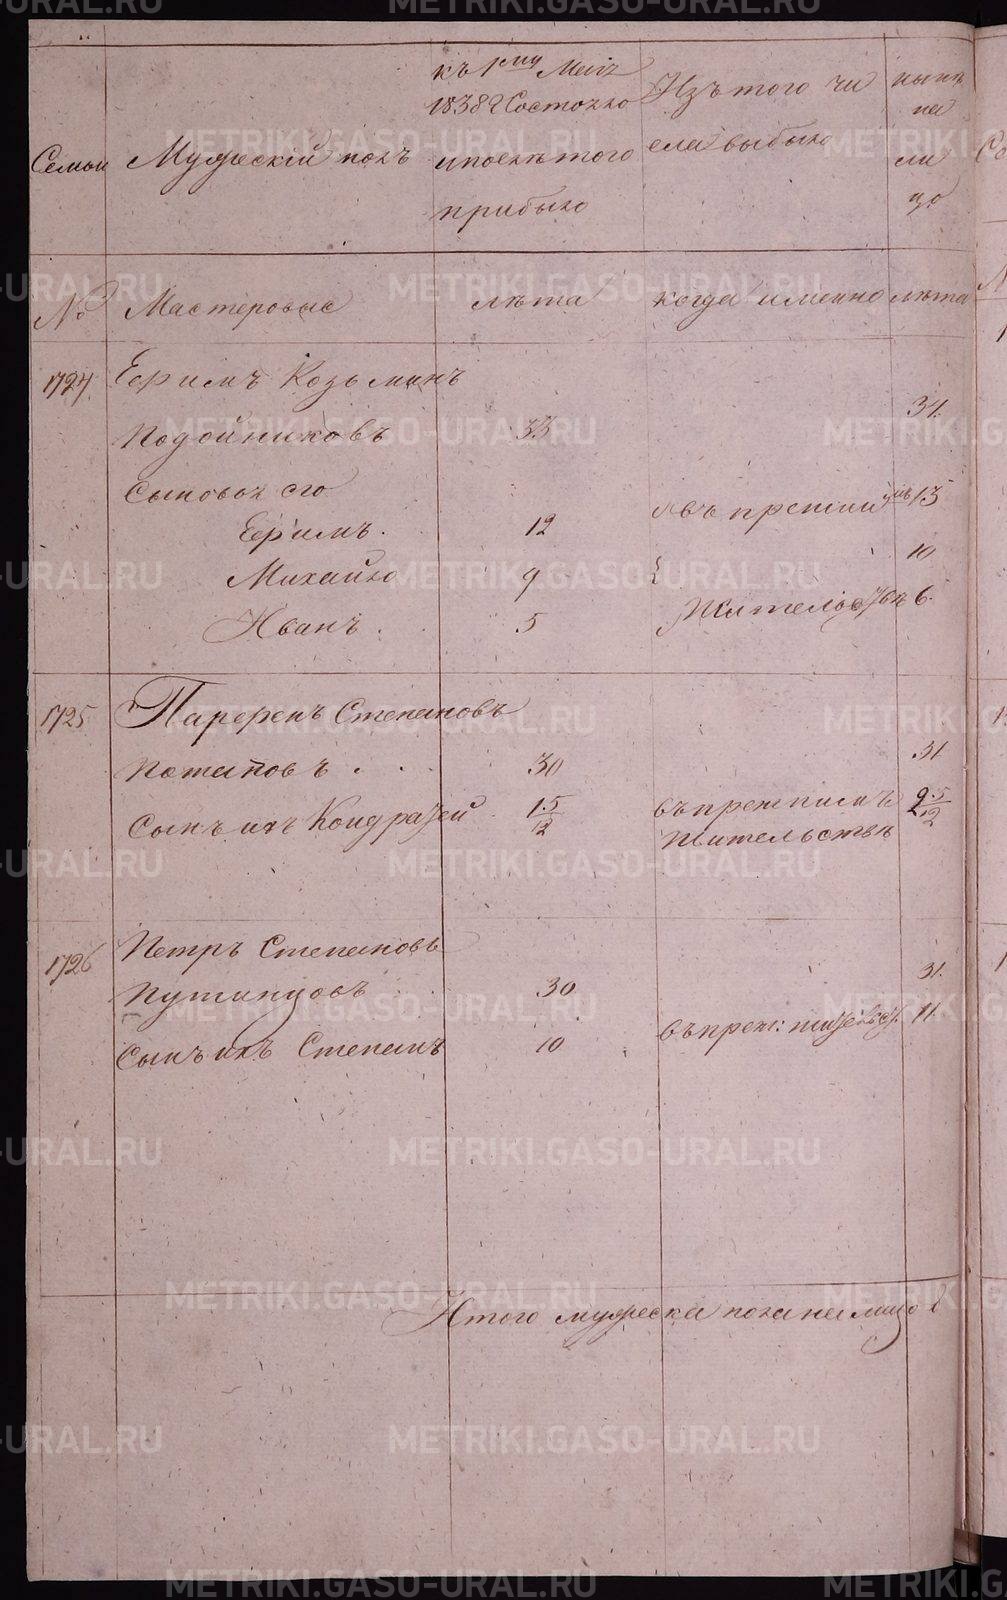 къ 1му Мая
1838 г Состояло
и после того
прибыло
Изъ того чи
сла выбыло
ныне
на
ли
цо
Семьи
Мужескій полъ
№
Мастеровые
лета
когда именно
лета
1724.
Ефимъ Козьминъ
Подойниковъ
33
34.
Сыновья его
Ефимъ.
12
въ прежни
13
Михайло
9
10
Иванъ.
5
Жительстве
6.
1725
Парфенъ Степановъ
Потаповъ . . .
30
31
Сынъ ихъ Кондратей
1 5/12
въ прежнимъ
Жительстве
2 5/12
1726
Петръ Степановъ
Путинцовъ
30
31.
Сынъ ихъ Степанъ
10
въ преж: жительст.
11.
Итого мужеска пола на лицо
METRIKI.GASO-URAL.RU